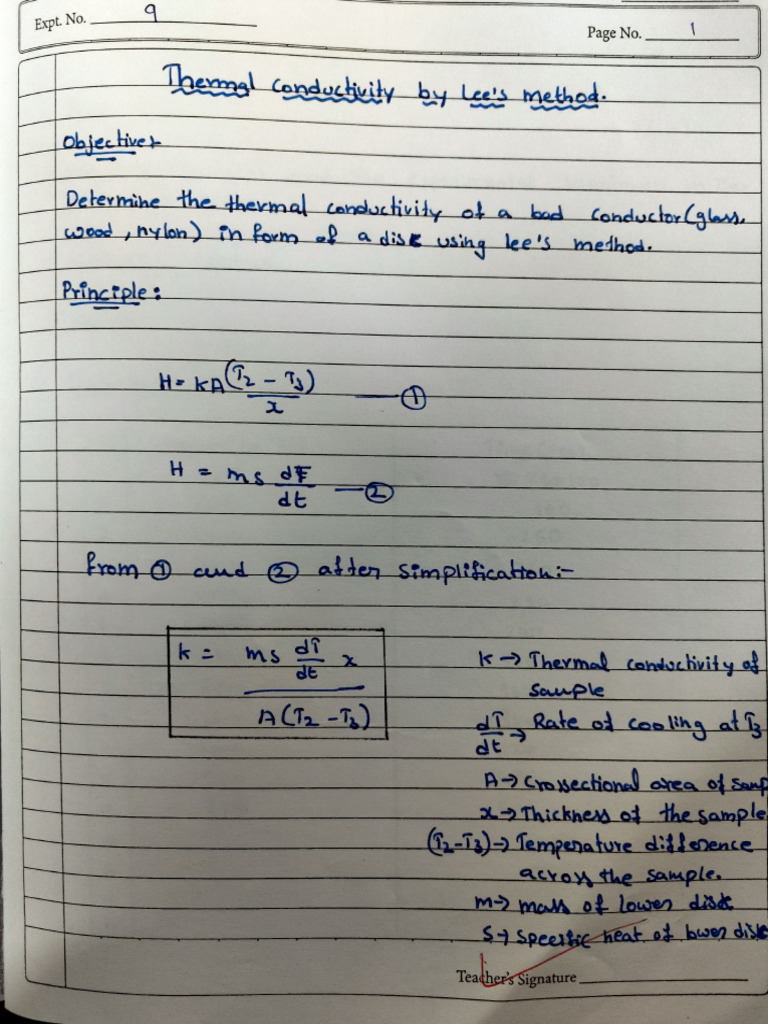 Expt. No. 9
Page No. 1
Thermal conductivity by Lee's method.
Objective:-
Determine the thermal conductivity of a bad conductor (glass,
wood, nylon) in form of a disk using lee's method.
Principle:
H = KA (T2 - T3) / x — ①
H = ms dT/dt — ②
from ① and ② after simplification:-
k = ms dT/dt x / A(T2 - T3)
K → Thermal conductivity of
sample
dT/dt → Rate of cooling at T3
A → Crossectional area of samp
x → Thickness of the sample
(T2-T3) → Temperature difference
across the sample.
m → mass of lower disk
S → Speecific heat of lower disk
Teacher's Signature